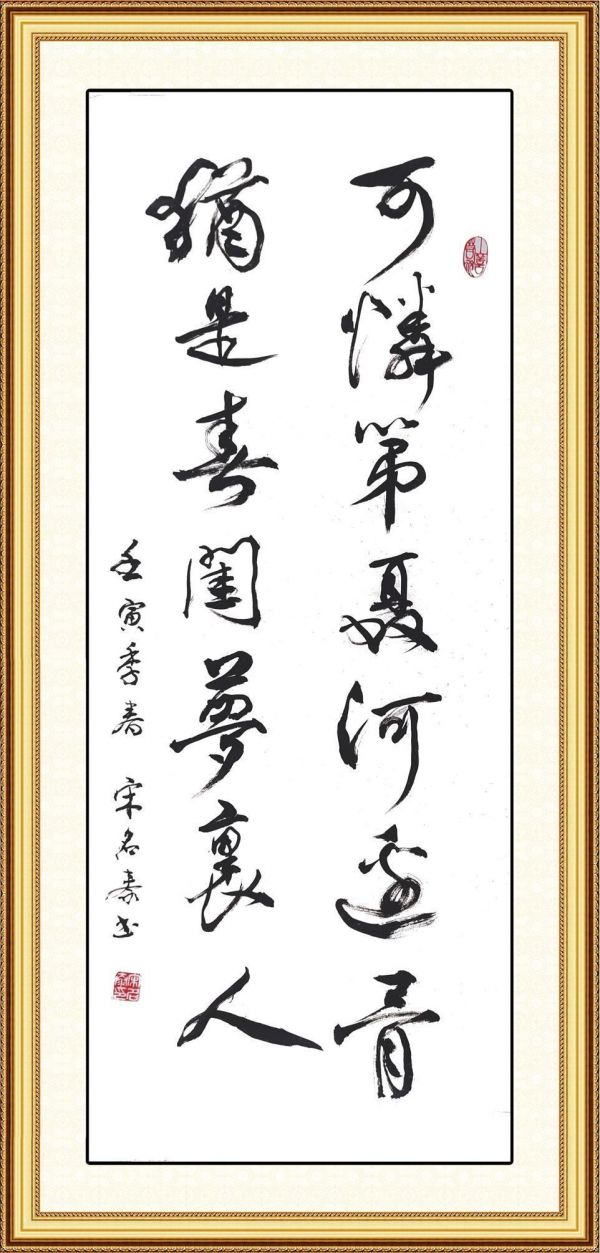 可憐第聂河邊骨
猶是春閨夢裏人
壬寅季春 宋名泰书